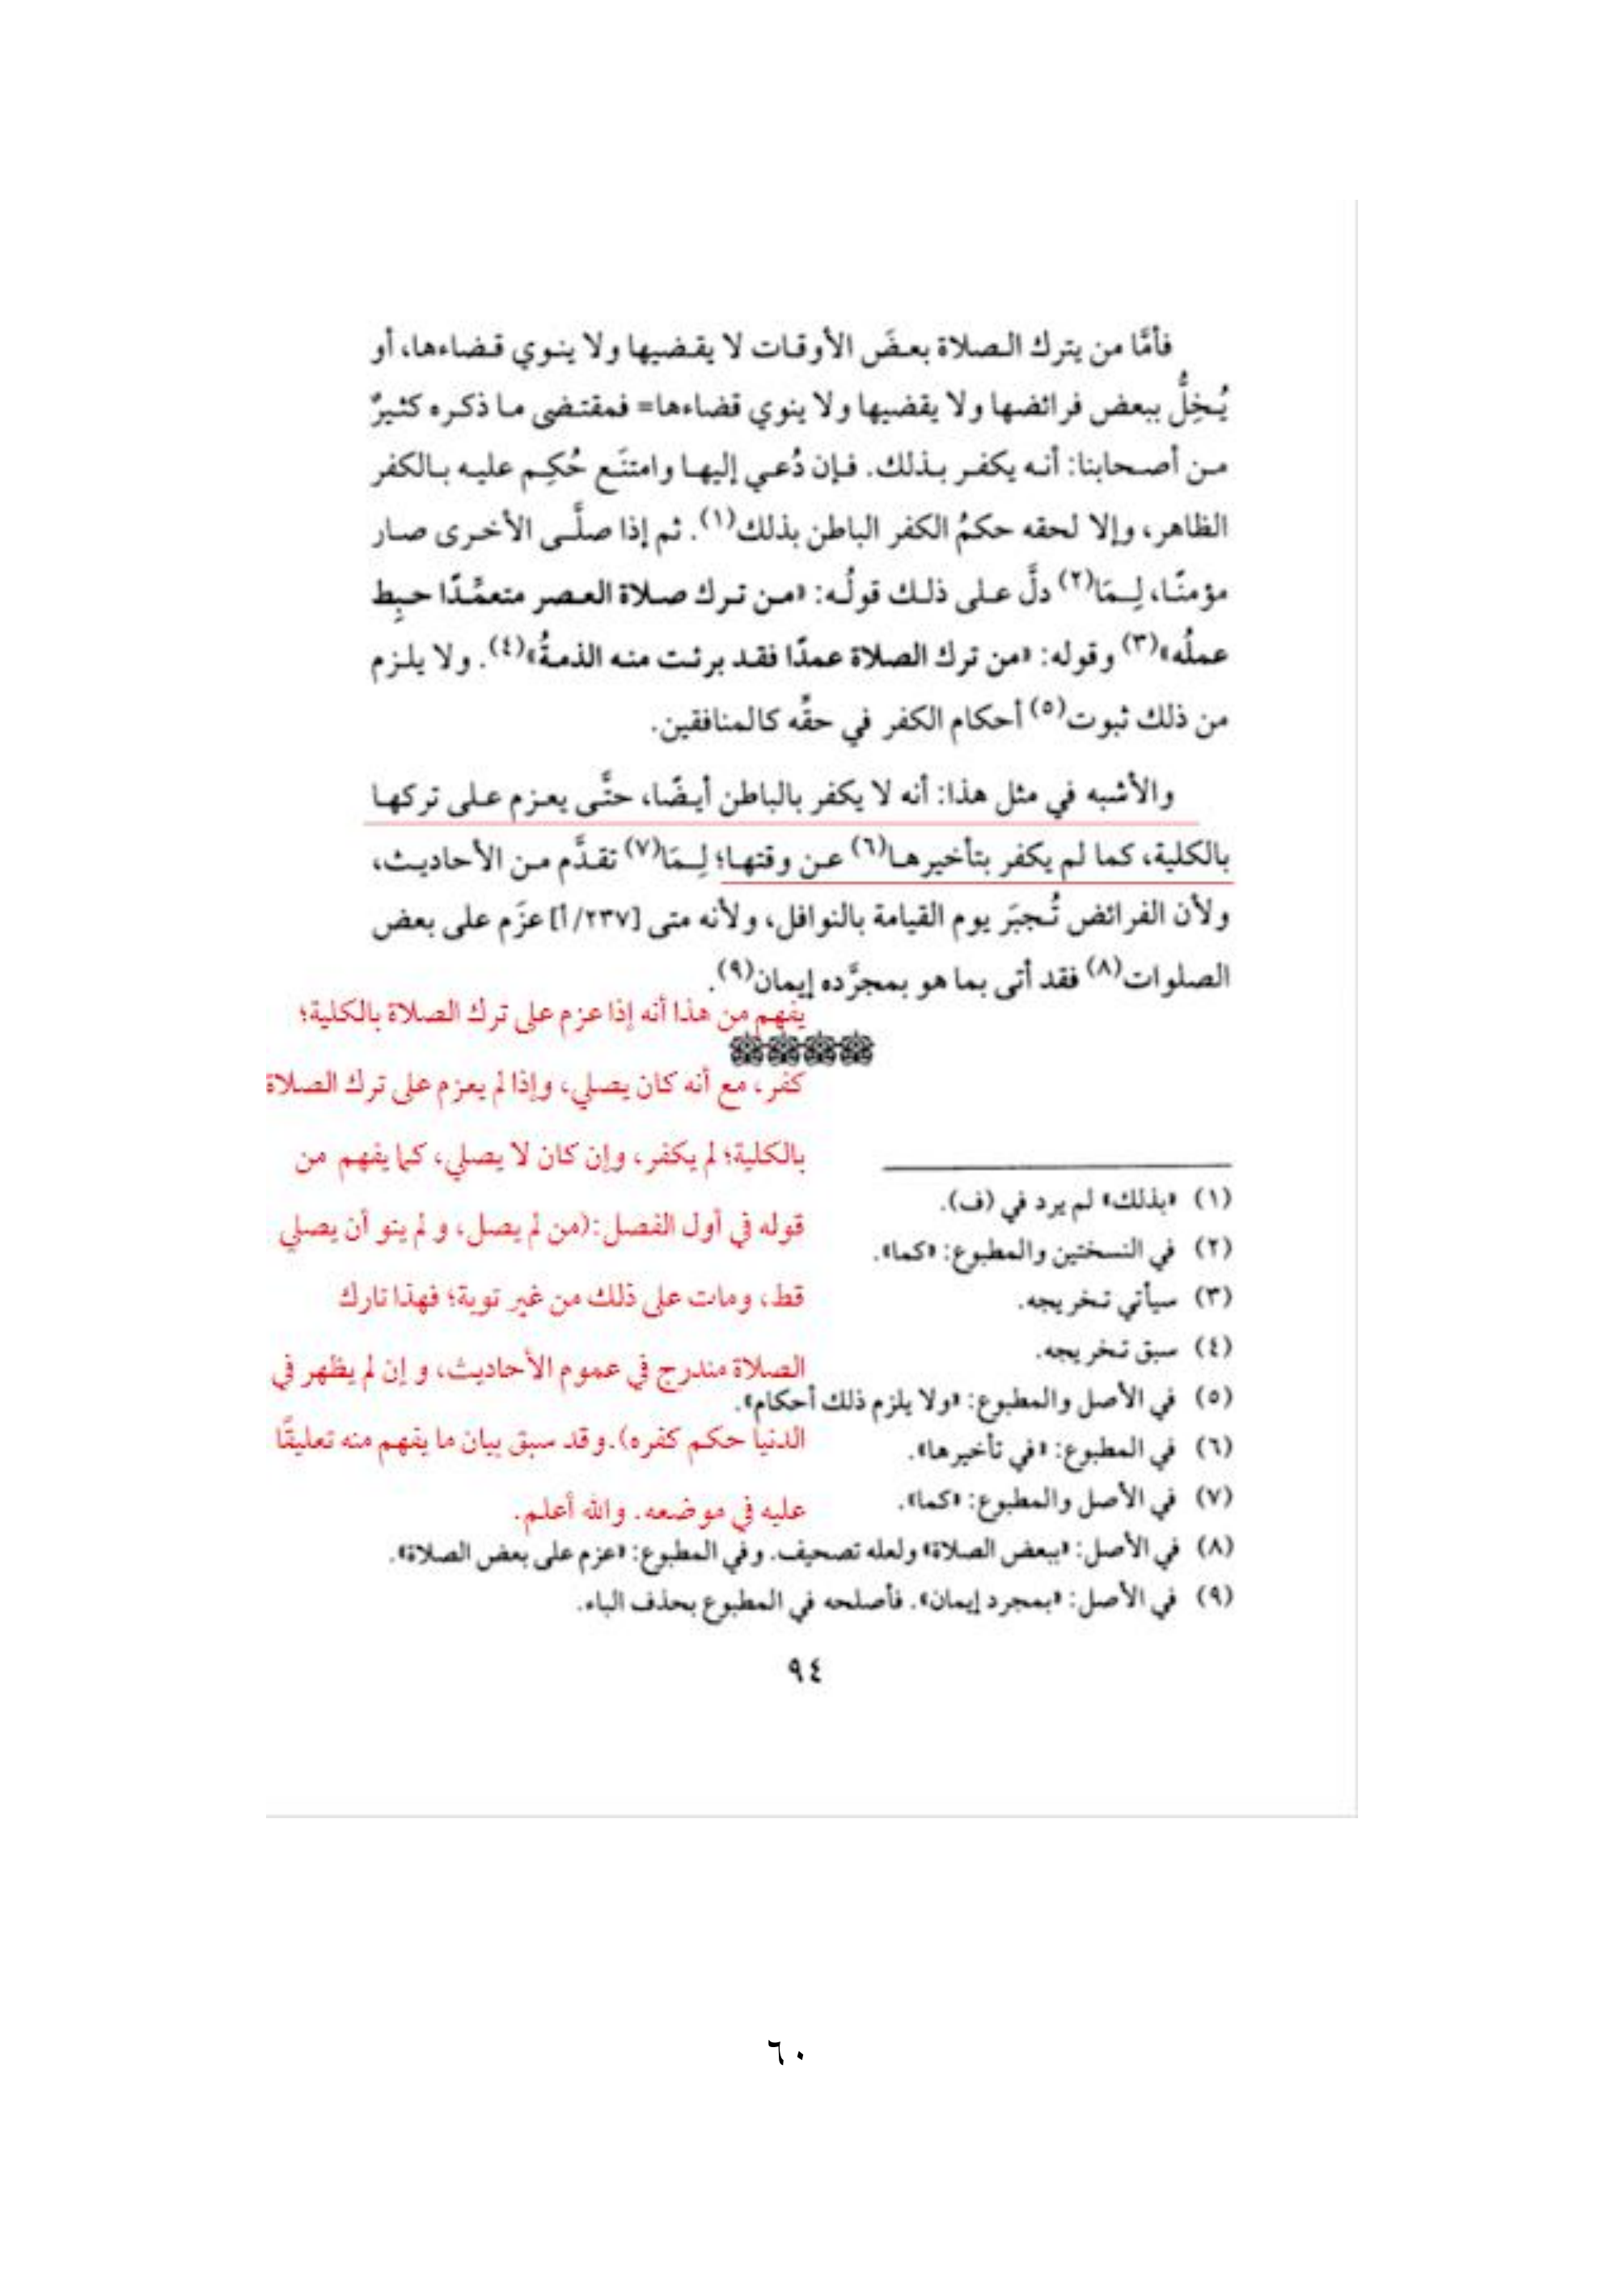 فأمَّا من يترك الصلاة بعضَ الأوقات لا يقضيها ولا ينوي قضاءها، أو
يُخِلُّ ببعض فرائضها ولا يقضيها ولا ينوي قضاءها= فمقتضى ما ذكره كثيرٌ
من أصحابنا: أنه يكفر بذلك. فإن دُعي إليها وامتنَع حُكِم عليه بالكفر
الظاهر، وإلا لحقه حكمُ الكفر الباطن بذلك(١). ثم إذا صلَّى الأخرى صار
مؤمنًا، لِمَا(٢) دلَّ على ذلك قولُه: «من ترك صلاة العصر متعمِّدًا حبِط
عملُه»(٣) وقوله: «من ترك الصلاة عمدًا فقد برئت منه الذمةُ»(٤). ولا يلزم
من ذلك ثبوت(٥) أحكام الكفر في حقِّه كالمنافقين.
والأشبه في مثل هذا: أنه لا يكفر بالباطن أيضًا، حتَّى يعزم على تركها
بالكلية، كما لم يكفر بتأخيرها(٦) عن وقتها؛ لِمَا(٧) تقدَّم من الأحاديث،
ولأن الفرائض تُجبَر يوم القيامة بالنوافل، ولأنه متى [٢٣٧/أ] عزَم على بعض
الصلوات(٨) فقد أتى بما هو بمجرَّده إيمان(٩).
يفهم من هذا أنه إذا عزم على ترك الصلاة بالكلية؛
كفر، مع أنه كان يصلي، وإذا لم يعزم على ترك الصلاة
بالكلية؛ لم يكفر، وإن كان لا يصلي، كما يفهم من
قوله في أول الفصل:(من لم يصل، و لم ينو أن يصلي
قط، ومات على ذلك من غير توبة؛ فهذا تارك
الصلاة مندرج في عموم الأحاديث، و إن لم يظهر في
الدنيا حكم كفره).وقد سبق بيان ما يفهم منه تعليقًا
عليه في موضعه. والله أعلم.
(١) «بذلك» لم يرد في (ف).
(٢) في النسختين والمطبوع: «كما».
(٣) سيأتي تخريجه.
(٤) سبق تخريجه.
(٥) في الأصل والمطبوع: «ولا يلزم ذلك أحكام».
(٦) في المطبوع: «في تأخيرها».
(٧) في الأصل والمطبوع: «كما».
(٨) في الأصل: «ببعض الصلاة» ولعله تصحيف. وفي المطبوع: «عزم على بعض الصلاة».
(٩) في الأصل: «بمجرد إيمان». فأصلحه في المطبوع بحذف الباء.
٩٤
٦٠